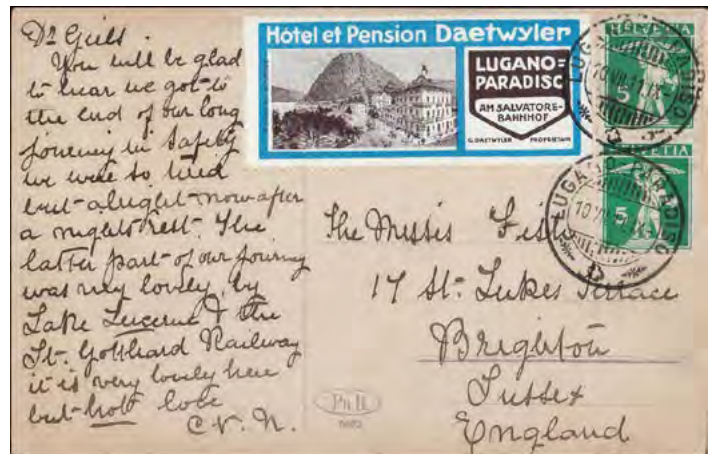 Dr Girls.
You will be glad
to hear we got to
the end of our long
journey in safety
we were so tired
but alright now after
a nights rest. The
latter part of our journey
was very lovely, by
Lake Lucerne & the
St. Gotthard Railway
it is very lovely here
but hot love
C. N.
Hôtel et Pension Daetwyler
LUGANO=
PARADISO
AM SALVATORE-
BAHNHOF
G. DAETWYLER PROPRIETAIR
HELVETIA
5
LUGANO PARADISO
HELVETIA
5
LUGANO PARADISO
The Misses
17 St. Lukes Terrace
Brighton
Sussex
England